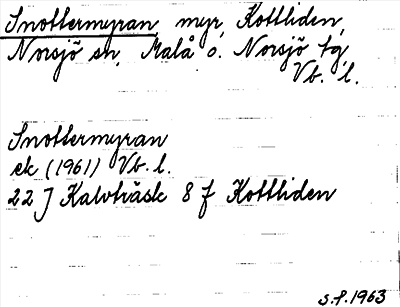 Snottermyran, myr, Kottliden,
Norsjö sn, Malå o. Norsjö tg,
Vb. l.
Snottermyran
ek (1961) Vb. l.
22 J Kalvträsk 8 f Kottliden
S.P. 1963